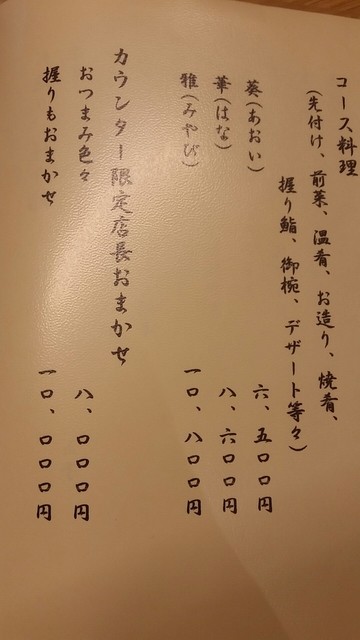 コース料理
(先付け、前菜、温肴、お造り、焼肴、
握り鮨、御椀、デザート等々)
葵(あおい) 六、五〇〇円
華(はな) 八、六〇〇円
雅(みやび) 一〇、八〇〇円
カウンター限定店長おまかせ
おつまみ色々 八、〇〇〇円
握りもおまかせ 一〇、〇〇〇円